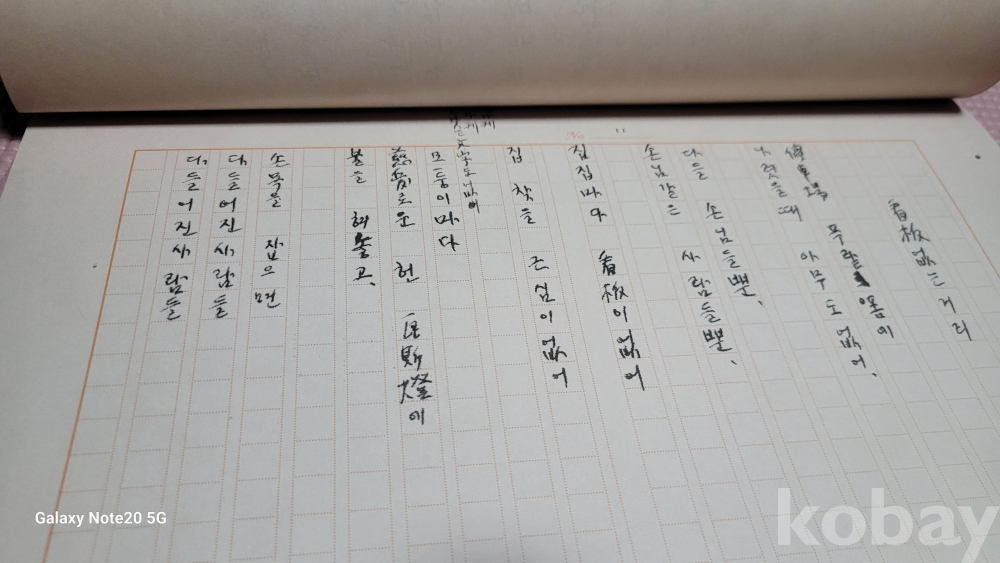 看板없는거리
停車場 푸랕폼에
나렷을때 아무도없어、
다들 손님들뿐、
손님같은 사람들뿐、
집집마다 看板이없어
집 찾을 근심이없어
文字도없이
모퉁이마다
慈愛로운 헌 瓦斯燈에
불을 혀놓고、
손목을 잡으면
다들 어진사람들
다들 어진사람들
No
Galaxy Note20 5G
kobay